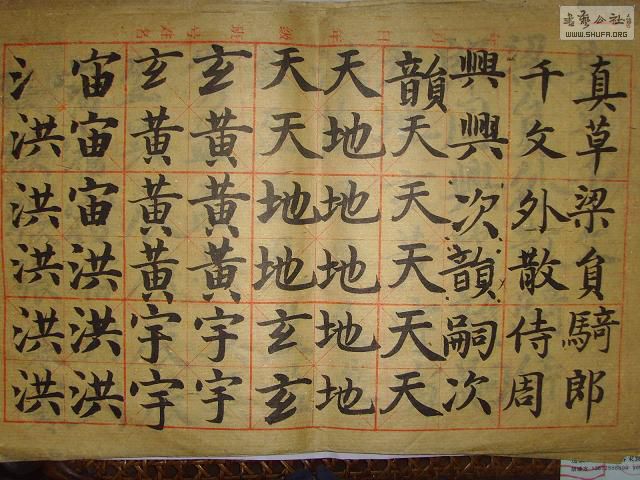 真草梁貟騎郎
千文外散侍周
興興次韻嗣次
韻天天天天天
天地地地地地
天天地地玄玄
玄黄黄黄宇宇
玄黄黄黄宇宇
宙宙宙洪洪洪
氵洪洪洪洪洪
書藝公社
WWW.SHUFA.ORG